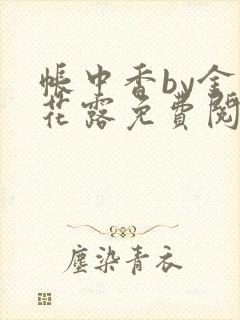 帳中香by金
花露免費閱
塵染青衣